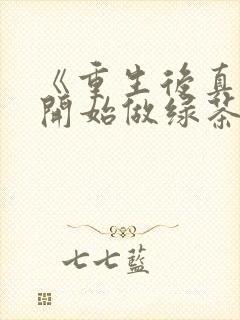 《重生後真
開始做绿茶
七七藍